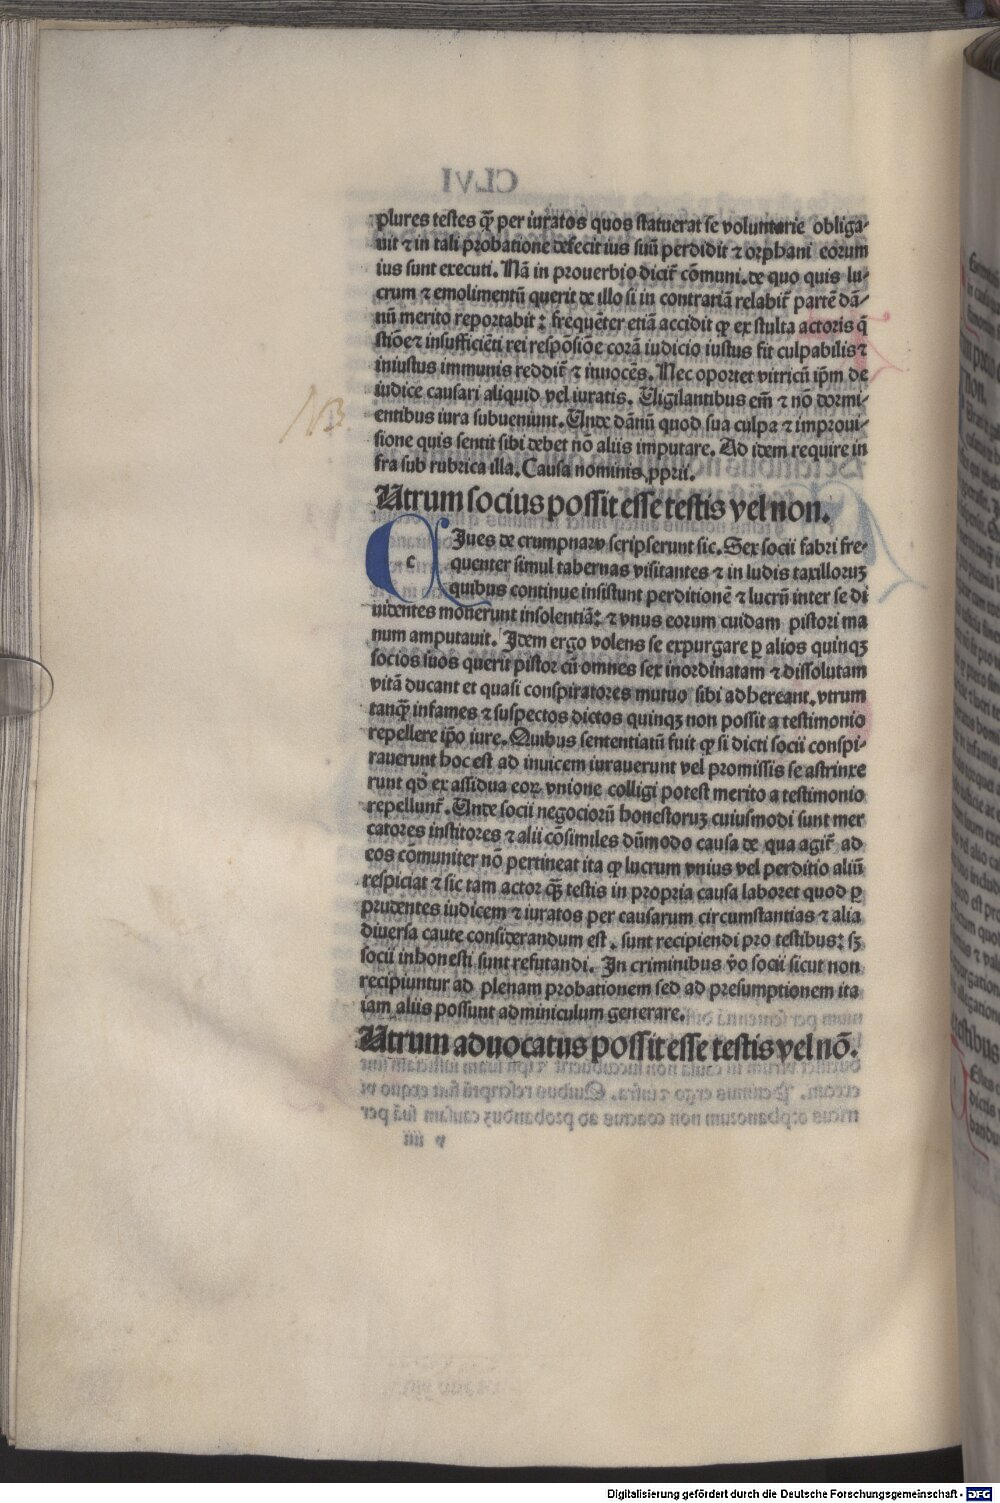 plures testes qꝫ̃ per iuratos quos statuerat se voluntarie obliga-
uit ⁊ in tali probatione defecit ius suũ perdidit ⁊ orphani eorum
ius sunt executi. Nã in prouerbio dicit᷑ cõmuni. de quo quis lu-
crum ⁊ emolimentũ querit de illo si in contrariã relabit᷑ partẽ dã-
nũ merito reportabit: frequẽter etiã accidit ꝙ ex stulta actoris q̃
stiõe ⁊ insufficiẽti rei respõsiõe corã iudicio iustus fit culpabilis ⁊
iniustus immunis reddit᷑ ⁊ innocẽs. Nec oportet vitricũ ip̃m de
iudice causari aliquid vel iuratis. Uigilantibus em̃ ⁊ nõ dormi-
entibus iura subueniunt. Unde dãnũ quod sua culpa ⁊ improui-
sione quis sentit sibi debet nõ aliis imputare. Ad idem require in
fra sub rubrica illa. Causa nominis ꝓprii.
Utrum socius possit esse testis vel non.
c Iues de crumpnaw scripserunt sic. Sex socii fabri fre-
quenter simul tabernas visitantes ⁊ in ludis taxilloruꝫ
quibus continue insistunt perditionẽ ⁊ lucrũ inter se di
uidentes mouerunt insolentiã: ⁊ vnus eorum cuidam pistori ma
num amputauit. Idem ergo volens se expurgare ꝑ alios quinqꝫ
socios suos querit pistor cũ omnes sex inordinatam ⁊ dissolutam
vitã ducant et quasi conspiratores mutuo sibi adhereant. vtrum
tanqꝫ̃ infames ⁊ suspectos dictos quinqꝫ non possit a testimonio
repellere ip̃o iure. Quibus sententiatũ fuit ꝙ si dicti socii conspi-
rauerunt hoc est ad inuicem iurauerunt vel promissis se astrinxe
runt qd̾ ex assidua eoꝝ vnione colligi potest merito a testimonio
repellunt᷑. Unde socii negociorũ honestoruꝫ cuiusmodi sunt mer
catores institores ⁊ alii cõsimiles dũmodo causa de qua agit᷑ ad
eos cõmuniter nõ pertineat ita ꝙ lucrum vnius vel perditio aliũ
respiciat ⁊ sic tam actor qꝫ̃ testis in propria causa laboret quod ꝑ
prudentes iudicem ⁊ iuratos per causarum circumstantias ⁊ alia
diuersa caute considerandum est. sunt recipiendi pro testibus: sꝫ
socii inhonesti sunt refutandi. In criminibus v̾o socii sicut non
recipiuntur ad plenam probationem sed ad presumptionem ita
iam aliis possunt adminiculum generare.
Utrum aduocatus possit esse testis vel nõ.
NB
Digitalisierung gefördert durch die Deutsche Forschungsgemeinschaft - DFG